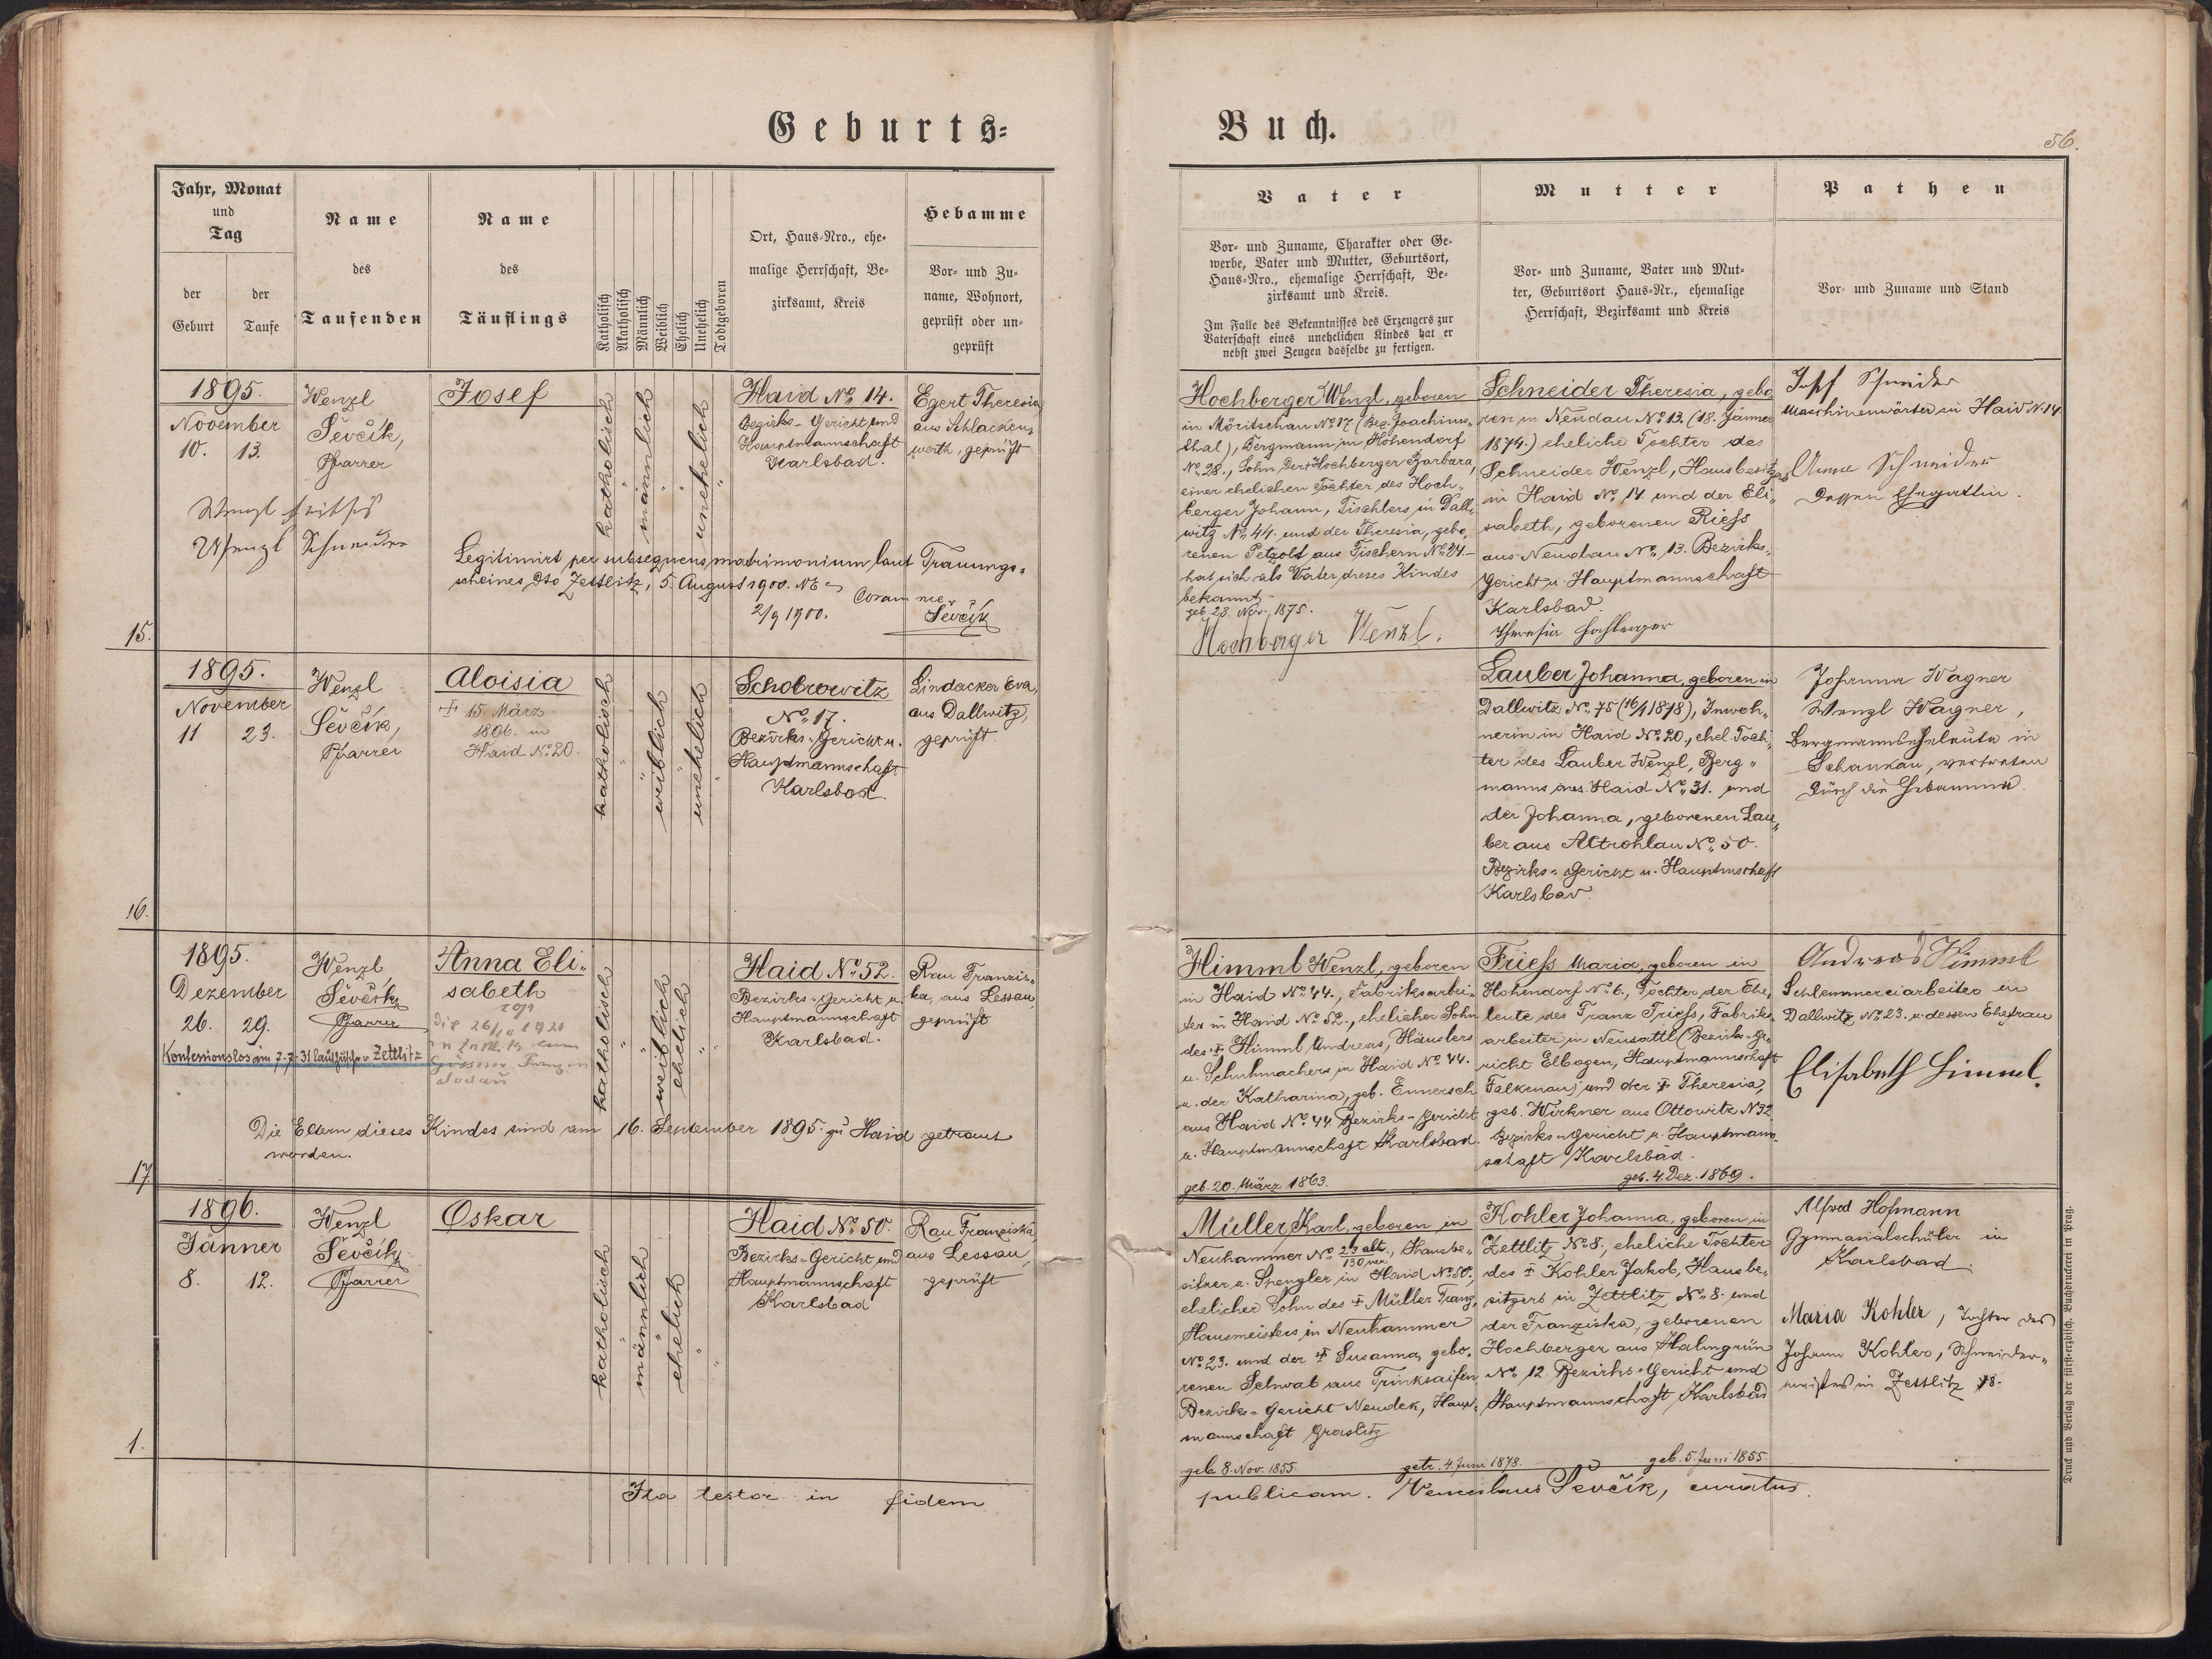 Geburts=
Buch.
56.
Jahr, Monat
und
Tag
der
Geburt
der
Taufe
Name
des
Taufenden
Name
des
Täuflings
Katholisch
Akatholisch
Männlich
Weiblich
Ehelich
Unehelich
Todtgeboren
Ort, Haus=Nro., ehe=
malige Herrschaft, Be=
zirksamt, Kreis
Hebamme
Vor= und Zu=
name, Wohnort,
geprüft oder un=
geprüft
Vater
Vor= und Zuname, Charakter oder Ge=
werbe, Vater und Mutter, Geburtsort,
Haus=Nro., ehemalige Herrschaft, Be=
zirksamt und Kreis.
Im Falle des Bekenntnisses des Erzeugers zur
Vaterschaft eines unehelichen Kindes hat er
nebst zwei Zeugen dasselbe zu fertigen.
Mutter
Vor= und Zuname, Vater und Mut=
ter, Geburtsort Haus=Nr., ehemalige
Herrschaft, Bezirksamt und Kreis
Pathen
Vor= und Zuname und Stand
15.
1895.
November
10. 13.
Wenzl
Ševčík,
Pfarrer
Wenzl
Wenzl Schneider
Josef
katholisch
männlich
unehelich
Haid No. 14.
Bezirks-Gericht und
Hauptmannschaft
Karlsbad.
Egert Theresia
aus Schlacken„
werth, geprüft
Legitimirt per subsequens matrimonium laut Trauungs„
scheines dto Zettlitz, 5. August 1900. NE
Coram me
2/9 1900.
Ševčík
Hochberger Wenzl, geboren
in Möritschau No. 17 (Bez. Joachims„
thal), Bergmann in Hohendorf
No. 28., Sohn der Hochberger Barbara,
einer ehelichen Tochter des Hoch„
berger Johann, Tischlers in Dall„
witz No. 44. und der Theresia, gebo„
renen Petzold aus Fischern No. 24 –
hat sich als Vater dieses Kindes
bekannt.
geb. 23. Nov. 1875.
Hochberger Wenzl.
Schneider Theresia, gebo
ren in Neudau No. 13. (18. Jänner
1874.) eheliche Tochter des
Schneider Wenzl, Hausbesitzers
in Haid No. 14 und der Eli„
sabeth, geborenen Riess
aus Neudau No. 13. Bezirks„
Gericht u. Hauptmannschaft
Karlsbad.
Theresia Hochberger
Josef Schneider
Maschinenwärter in Haid N. 14
Anna Schneider
dessen Ehegattin.
16.
1895.
November
11 23.
Wenzl
Ševčík,
Pfarrer
Aloisia
† 15. März
1896. in
Haid No. 20.
katholisch
weiblich
unehelich
Schobrowitz
No. 17.
Bezirks-Gericht u.
Hauptmannschaft
Karlsbad.
Lindacker Eva,
aus Dallwitz,
geprüft
Lauber Johanna, geboren in
Dallwitz No. 75 (16/1 1878), Inwoh„
nerin in Haid No. 20., ehel. Toch„
ter des Lauber Wenzl, Berg„
manns aus Haid No. 31. und
der Johanna, geborenen Lau„
ber aus Altrohlau No. 50.
Bezirks-Gericht u. Hauptmschaft
Karlsbad.
Johanna Wagner
Wenzl Wagner,
Bergmannseheleute in
Schankau, vertreten
durch die Hebamme.
17.
1895.
Dezember
26. 29.
Konfessionslos am 7.7.31 laut Zettlitz
Wenzl
Ševčík
Pfarrer
Anna Eli„
sabeth
26/10 1920
in Zettlitz
Franz
katholisch
weiblich
ehelich
Haid No. 52.
Bezirks-Gericht u.
Hauptmannschaft
Karlsbad.
Rau Franzis„
ka, aus Lessau,
geprüft
Die Eltern dieses Kindes sind am 16. September 1895. zu Haid getraut
worden.
Himml Wenzl, geboren
in Haid No. 44., Fabriksarbei„
ter in Haid No. 52., ehelicher Sohn
des † Himml Andreas, Häuslers
u. Schuhmachers in Haid No. 44.
u. der Katharina, geb. Ennersch
aus Haid No. 44 Bezirks-Gericht
u. Hauptmannschaft Karlsbad.
geb. 20. März 1863.
Friess Maria, geboren in
Hohendorf No. 6., Tochter der Ehe„
leute des Franz Friess, Fabriks„
arbeiter in Neusattl (Bezirks-Ge„
richt Elbogen, Hauptmannschaft
Falkenau) und der † Theresia,
geb. Wirkner aus Ottowitz N 32
Bezirks-Gericht u. Hauptmann„
schaft Karlsbad.
geb. 4. Dez. 1869.
Andreas Himml
Schlemmereiarbeiter in
Dallwitz No. 23. u. dessen Ehefrau
Elisabeth Himml.
1.
1896.
Jänner
8. 12.
Wenzl
Ševčík
Pfarrer
Oskar
katholisch
männlich
ehelich
Haid No. 50.
Bezirks-Gericht und
Hauptmannschaft
Karlsbad
Rau Franziska
aus Lessau,
geprüft
Müller Karl, geboren in
Neuhammer No. 23 alt / 130 neu, Hausbe„
sitzer u. Spengler in Haid No. 50.,
ehelicher Sohn des † Müller Franz,
Hausmeisters in Neuhammer
No. 23. und der † Susanna, gebo„
renen Schwab aus Trinksaifen
Bezirks-Gericht Neudek, Haupt„
mannschaft Graslitz
geb. 8. Nov. 1855.
getr. 4. Juni 1878.
Kohler Johanna, geboren in
Zettlitz No. 8., eheliche Tochter
des † Kohler Jakob, Hausbe„
sitzers in Zettlitz No. 8. und
der Franziska, geborenen
Hochberger aus Halmgrün
No. 12. Bezirks-Gericht und
Hauptmannschaft Karlsbad
geb. 5. Juni 1855.
Alfred Hofmann
Gymnasialschüler in
Karlsbad.
Maria Kohler, Tochter des
Johann Kohler, Schneider„
meisters in Zettlitz 78.
Ita testor in fidem
publicam. Venceslaus Ševčík, curatus.
Druck und Verlag der fürst=erzbisch. Buchdruckerei in Prag.